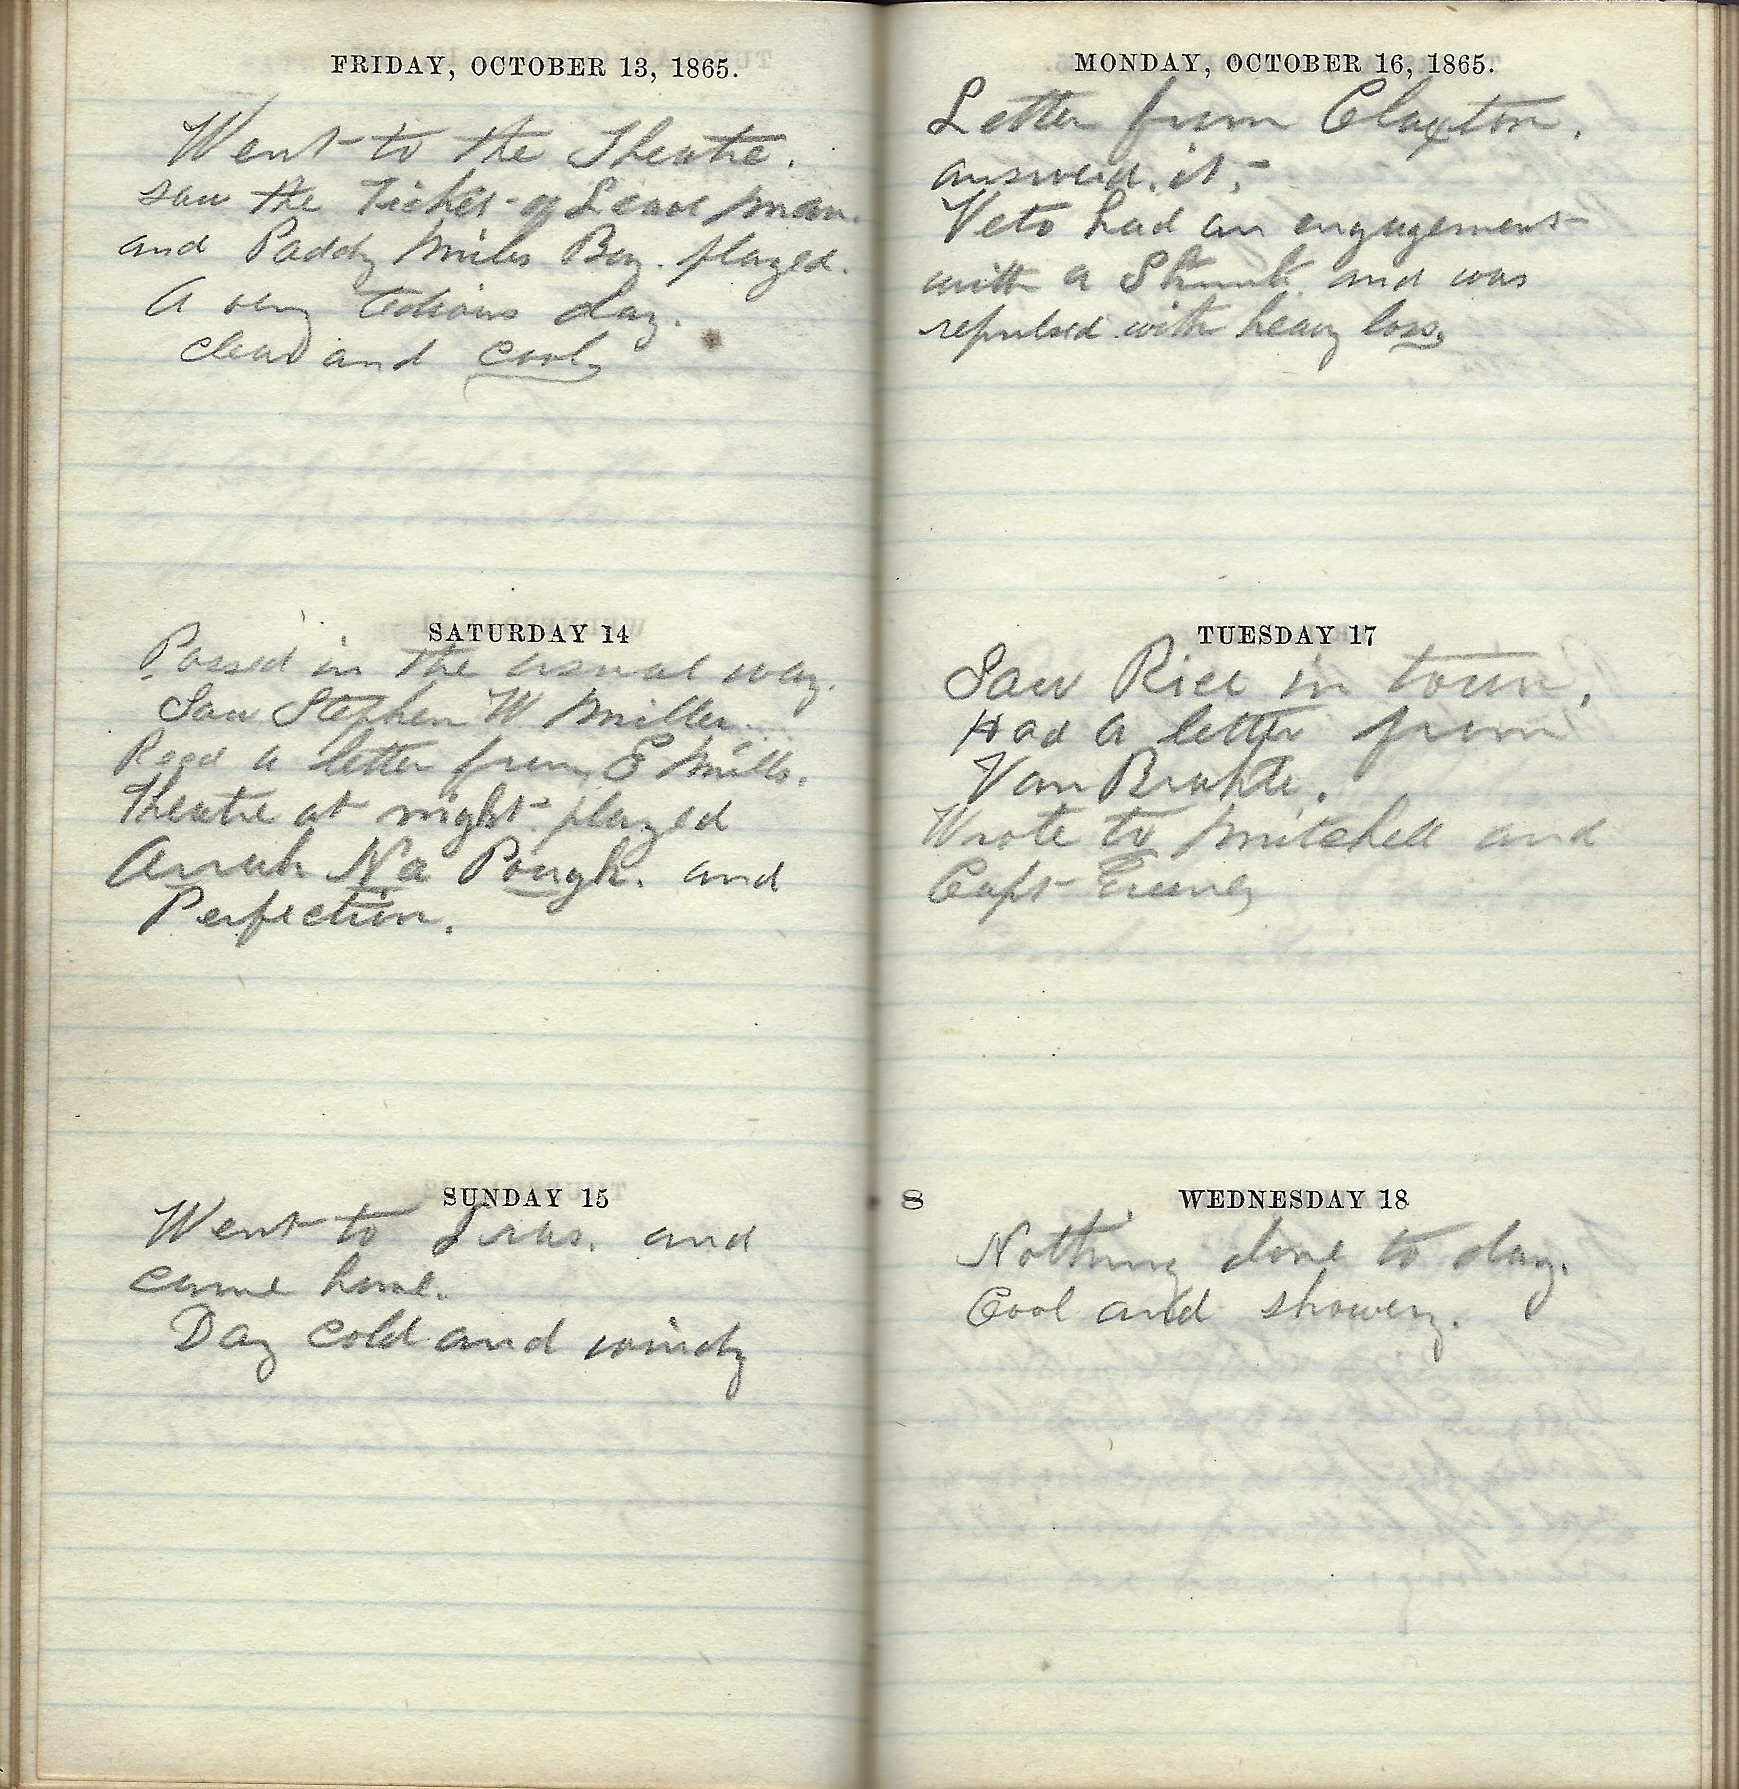 FRIDAY, OCTOBER 13, 1865.
Went to the Theatre.
saw the Ticket-of Leave man.
and Paddy Miles Boy. played.
A very tedious day.
clear and cool.
SATURDAY 14
Passed in the usual way.
Saw Stephen W Miller.
Recd a letter from E Mills.
Theatre at night. played
Arrah Na Pough. and
Perfection.
SUNDAY 15
Went to and
came home.
Day cold and windy
MONDAY, OCTOBER 16, 1865.
Letter from Claxton.
answerd. it.
Veto had an engagement
with a Skunk and was
repulsed with heavy loss.
TUESDAY 17
Saw Rice in town.
Had a letter from
Van
Wrote to Mitchell and
Capt Greene
8 WEDNESDAY 18
Nothing done to day.
Cool and showery.